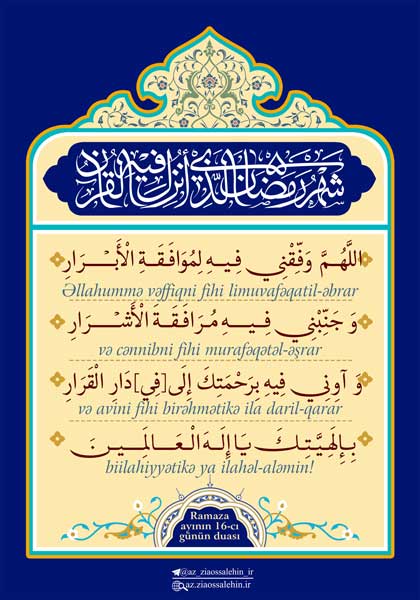 شَهْرُ رَمَضَانَ الَّذِي أُنْزِلَ فِيهِ الْقُرْآنُ
اللَّهُمَّ وَفِّقْنِي فِيهِ لِمُوَافَقَةِ الْأَبْرَارِ
Əllahummə vəffiqni fihi limuvafəqatil-əbrar
وَ جَنِّبْنِي فِيهِ مُرَافَقَةَ الْأَشْرَارِ
və cənnibni fihi murafəqətəl-əşrar
وَ آوِنِي فِيهِ بِرَحْمَتِكَ إِلَى [فِي] دَارِ الْقَرَارِ
və avini fihi birəhmətikə ila daril-qarar
بِإِلَهِيَّتِكَ يَا إِلَهَ الْعَالَمِينَ
biilahiyyətikə ya ilahəl-aləmin!
Ramaza
ayının 16-cı
günün duası
@az_ziaossalehin_ir
az.ziaossalehin.ir